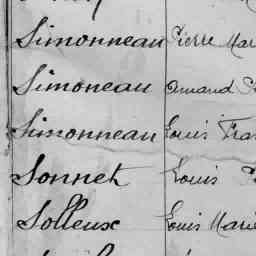 Simonneau Pierre Mar
Simoneau Amand
Simonneau Louis Fra
Sonnet Louis
Solleux Louis Marie